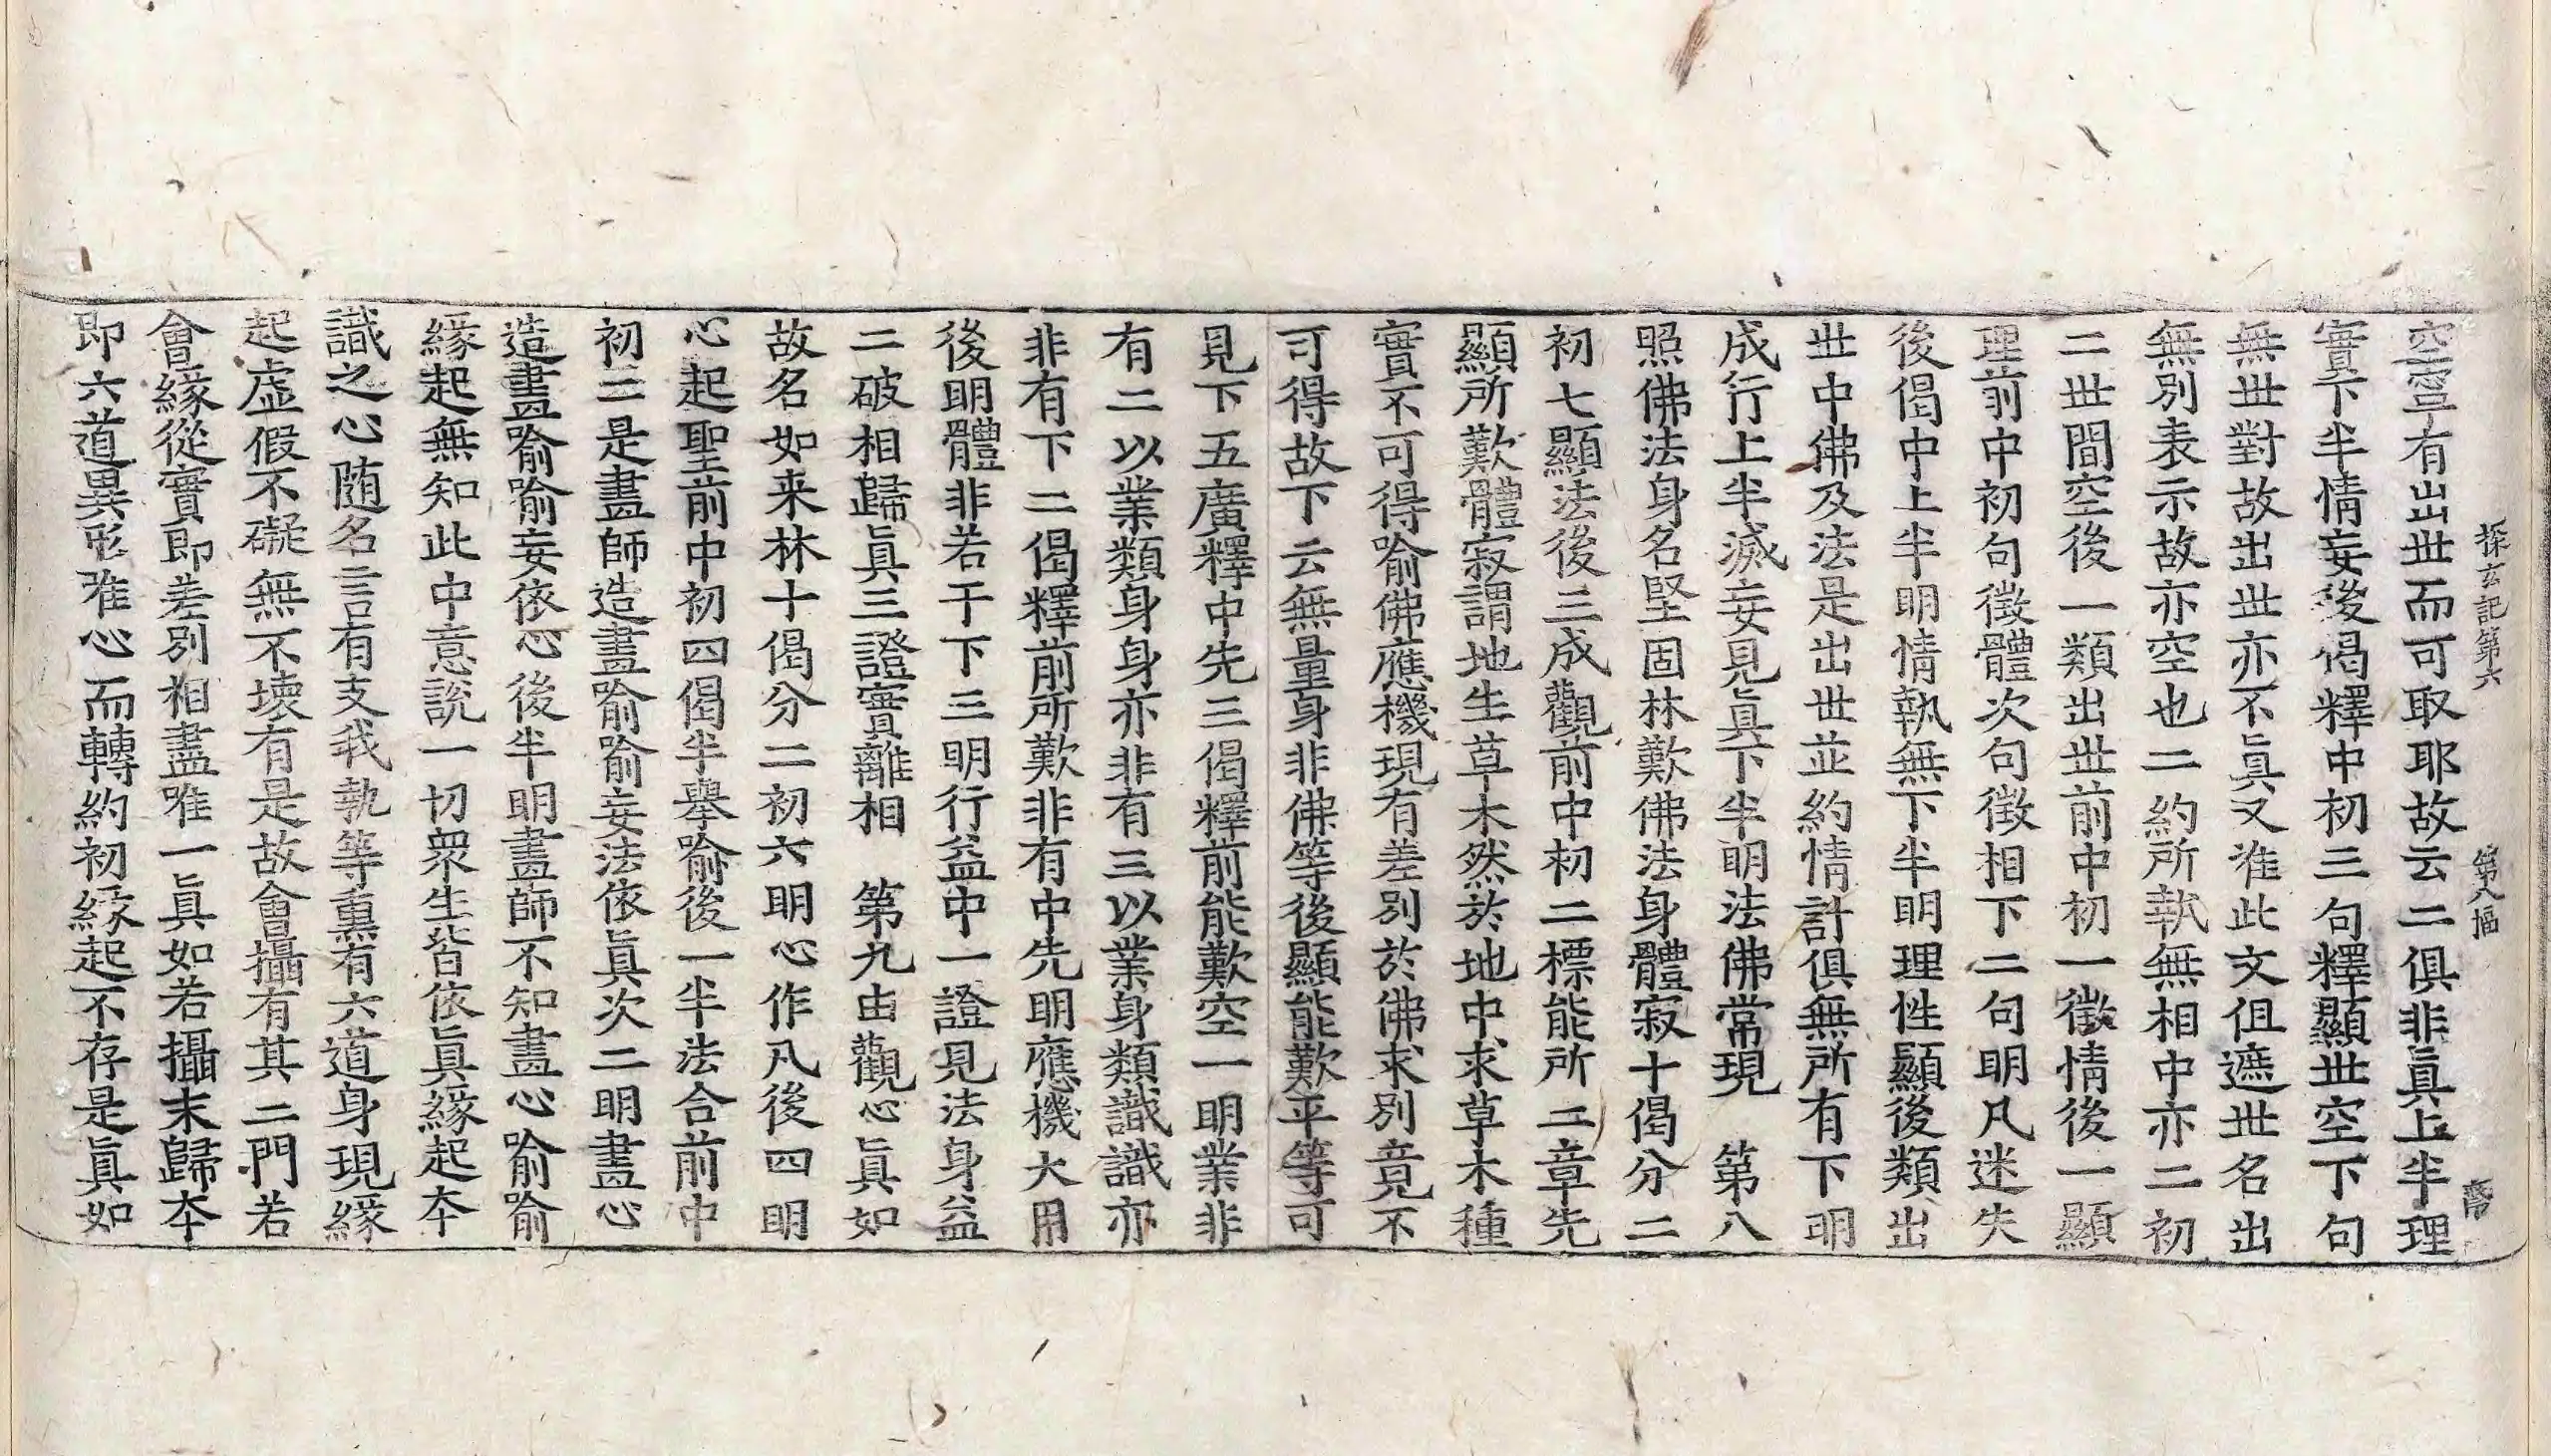 探玄記第六　第八幅　齊
空寧有出世而可取耶故云二俱非眞上半理
實下半情妄後偈釋中初三句釋顯世空下句
無世對故出世亦不眞又准此文但遮世名出
無別表示故亦空也二約所執無相中亦二初
二世間空後一類出世前中初一徵情後一顯
理前中初句徵體次句徵相下二句明凡迷失
後偈中上半明情執無下半明理性顯後類出
世中佛及法是出世並約情計俱無所有下明
成行上半滅妄見眞下半明法佛常現　第八
照佛法身名堅固林歎佛法身體寂十偈分二
初七顯法後三成觀前中初二標能所二章先
顯所歎體寂謂地生草木然於地中求草木種
實不可得喻佛應機現有差別於佛求別竟不
可得故下云無量身非佛等後顯能歎平等可
見下五廣釋中先三偈釋前能歎空一明業非
有二以業類身身亦非有三以業身類識識亦
非有下二偈釋前所歎非有中先明應機大用
後明體非若干下三明行益中一證見法身益
二破相歸眞三證實離相　第九由觀心眞如
故名如来林十偈分二初六明心作凡後四明
心起聖前中初四偈半舉喻後一半法合前中
初三是畫師造畫喻喻妄法依眞次二明畫心
造畫喻喻妄依心後半明畫師不知畫心喻喻
緣起無知此中意說一切衆生皆依眞緣起本
識之心随名言有支我執等熏有六道身現緣
起虛假不礙無不壊有是故會攝有其二門若
會緣從實即差別相盡唯一眞如若攝末歸本
即六道異形唯心而轉約初緣起不存是眞如